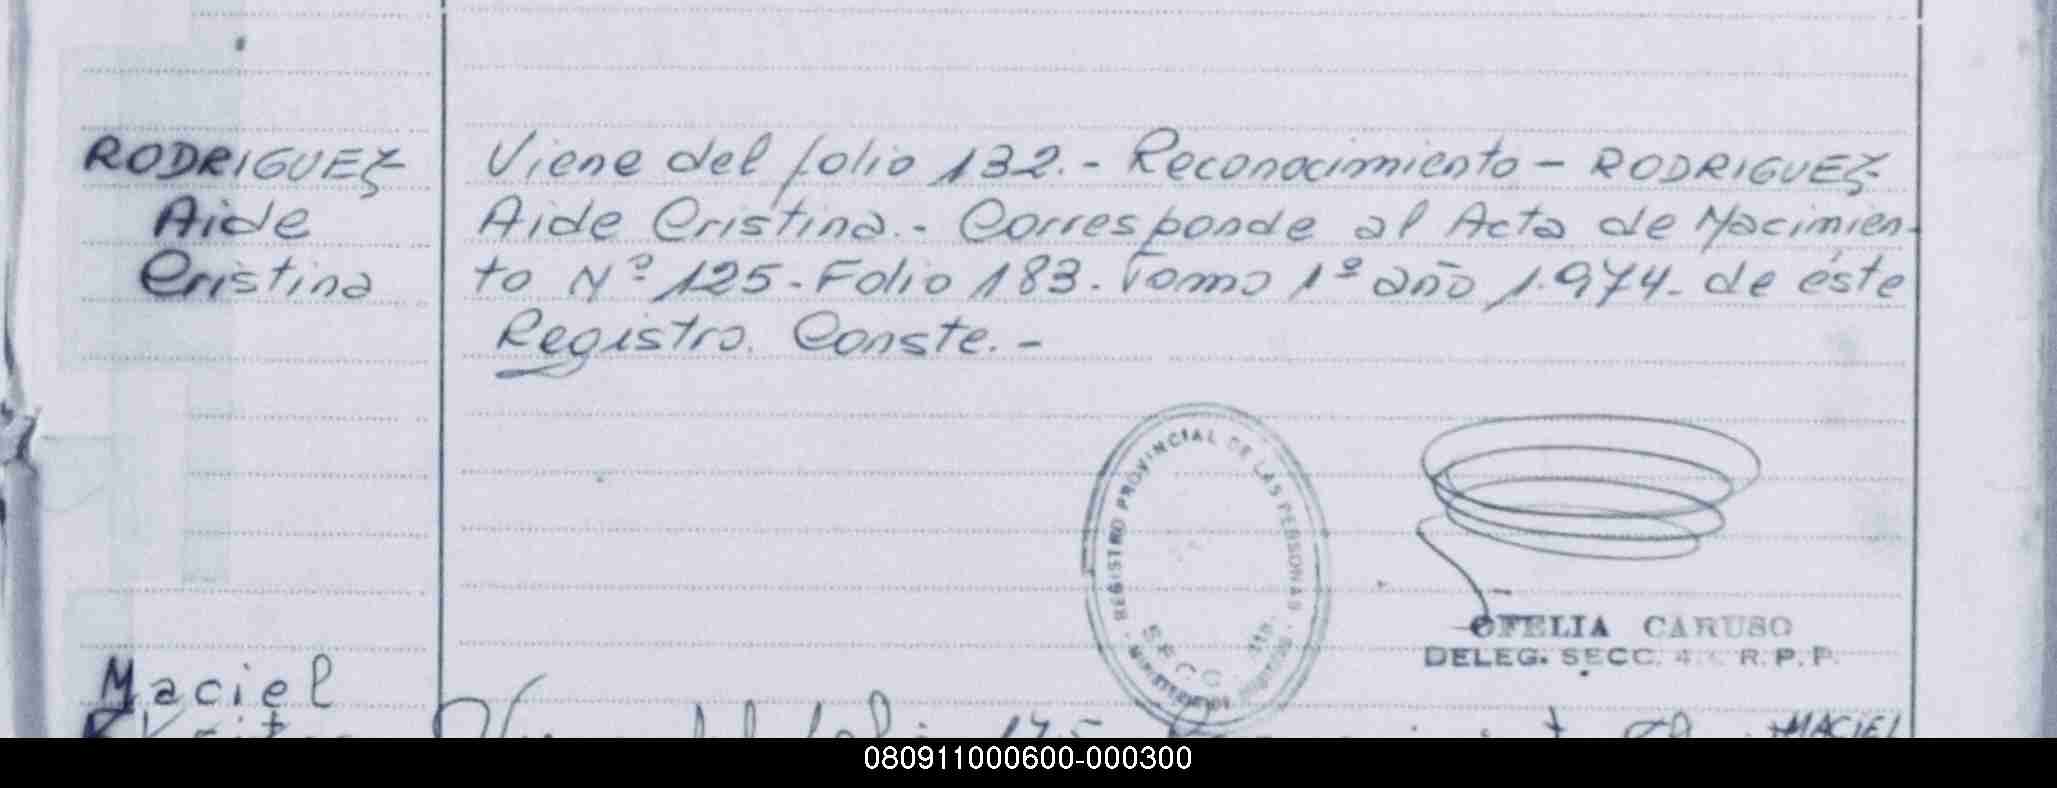 RODRIGUEZ
Aide
Cristina
Viene del folio 132.- Reconocimiento - RODRIGUEZ
Aide Cristina.- Corresponde al Acta de Nacimien-
to Nº 125 - Folio 183. Tomo 1º año 1.974 - de éste
Registro. Conste. -
REGISTRO PROVINCIAL DE LAS PERSONAS
SECC
OFELIA CARUSO
DELEG. SECC. 4 R. P. P.
Maciel
MACIEL
080911000600-000300